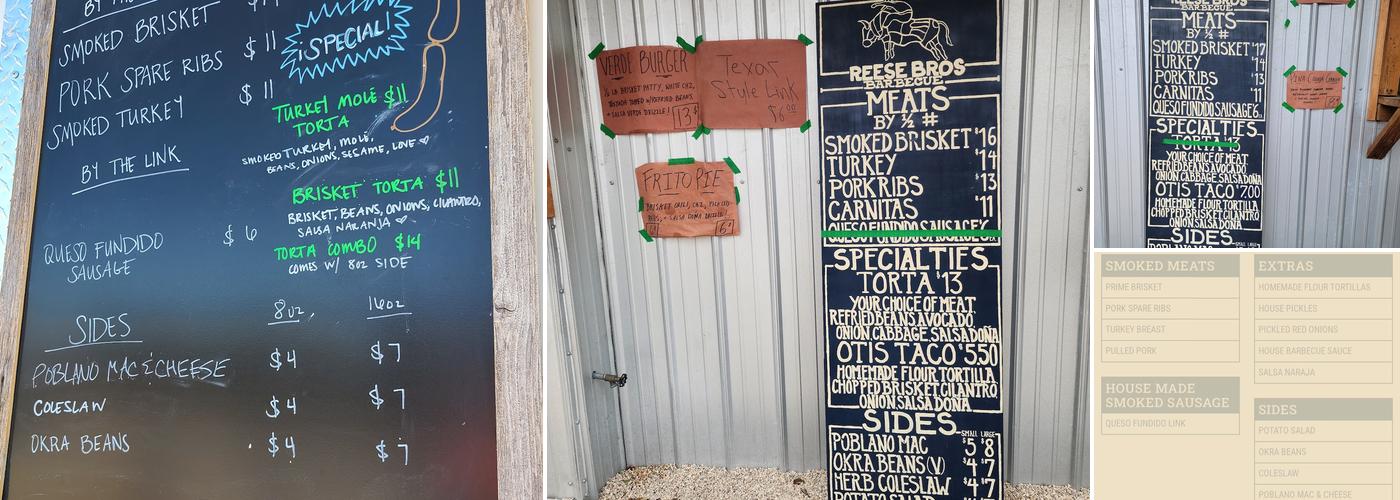 BY THE
SMOKED BRISKET
PORK SPARE RIBS $11
SMOKED TURKEY $11
BY THE LINK
QUESO FUNDIDO $6
SAUSAGE
¡SPECIAL!
TURKEY MOLÉ $11
TORTA
SMOKED TURKEY, MOLE,
BEANS, ONIONS, SESAME, LOVE ♡
BRISKET TORTA $11
BRISKET, BEANS, ONIONS, CILANTRO,
SALSA NARANJA ♡
TORTA COMBO $14
COMES W/ 8OZ SIDE
SIDES 8oz, 16oz
POBLANO MAC & CHEESE $4 $7
COLESLAW $4 $7
OKRA BEANS $4 $7
VERDE BURGER
1/2 LB BRISKET PATTY, WHITE CHZ,
TOSTADA TOPPED W/REFRIED BEANS,
+ SALSA VERDE DRIZZLE! 13$
Texas
Style Link
$6.00
FRITO PIE
BRISKET CHILI, CHZ, PICKLED
+ SALSA DOÑA DRIZZLE!
REESE BROS
BARBECUE
MEATS
BY ½ #
SMOKED BRISKET $16
TURKEY $14
PORK RIBS $13
CARNITAS $11
QUESO FUNDIDO SAUSAGE
SPECIALTIES
TORTA $13
YOUR CHOICE OF MEAT
REFRIED BEANS AVOCADO
ONION, CABBAGE, SALSA DOÑA
OTIS TACO $550
HOMEMADE FLOUR TORTILLA
CHOPPED BRISKET, CILANTRO
ONION SALSA DOÑA
SIDES SMALL LARGE
POBLANO MAC $5 $8
OKRA BEANS (V) $4 $7
HERB COLESLAW $4 $7
POTATO SALAD
REESE BROS
BARBECUE
MEATS
BY ½ #
SMOKED BRISKET $17
TURKEY $14
PORK RIBS $13
CARNITAS $11
QUESO FUNDIDO SAUSAGE 6
SPECIALTIES
TORTA $13
YOUR CHOICE OF MEAT
REFRIED BEANS AVOCADO
ONION, CABBAGE, SALSA DOÑA
OTIS TACO $700
HOMEMADE FLOUR TORTILLA
CHOPPED BRISKET, CILANTRO
ONION SALSA DOÑA
SIDES SMALL LARGE
POBLANO MAC
SMOKED MEATS
PRIME BRISKET
PORK SPARE RIBS
TURKEY BREAST
PULLED PORK
HOUSE MADE
SMOKED SAUSAGE
QUESO FUNDIDO LINK
EXTRAS
HOMEMADE FLOUR TORTILLAS
HOUSE PICKLES
PICKLED RED ONIONS
HOUSE BARBECUE SAUCE
SALSA NARAJA
SIDES
POTATO SALAD
OKRA BEANS
COLESLAW
POBLANO MAC & CHEESE